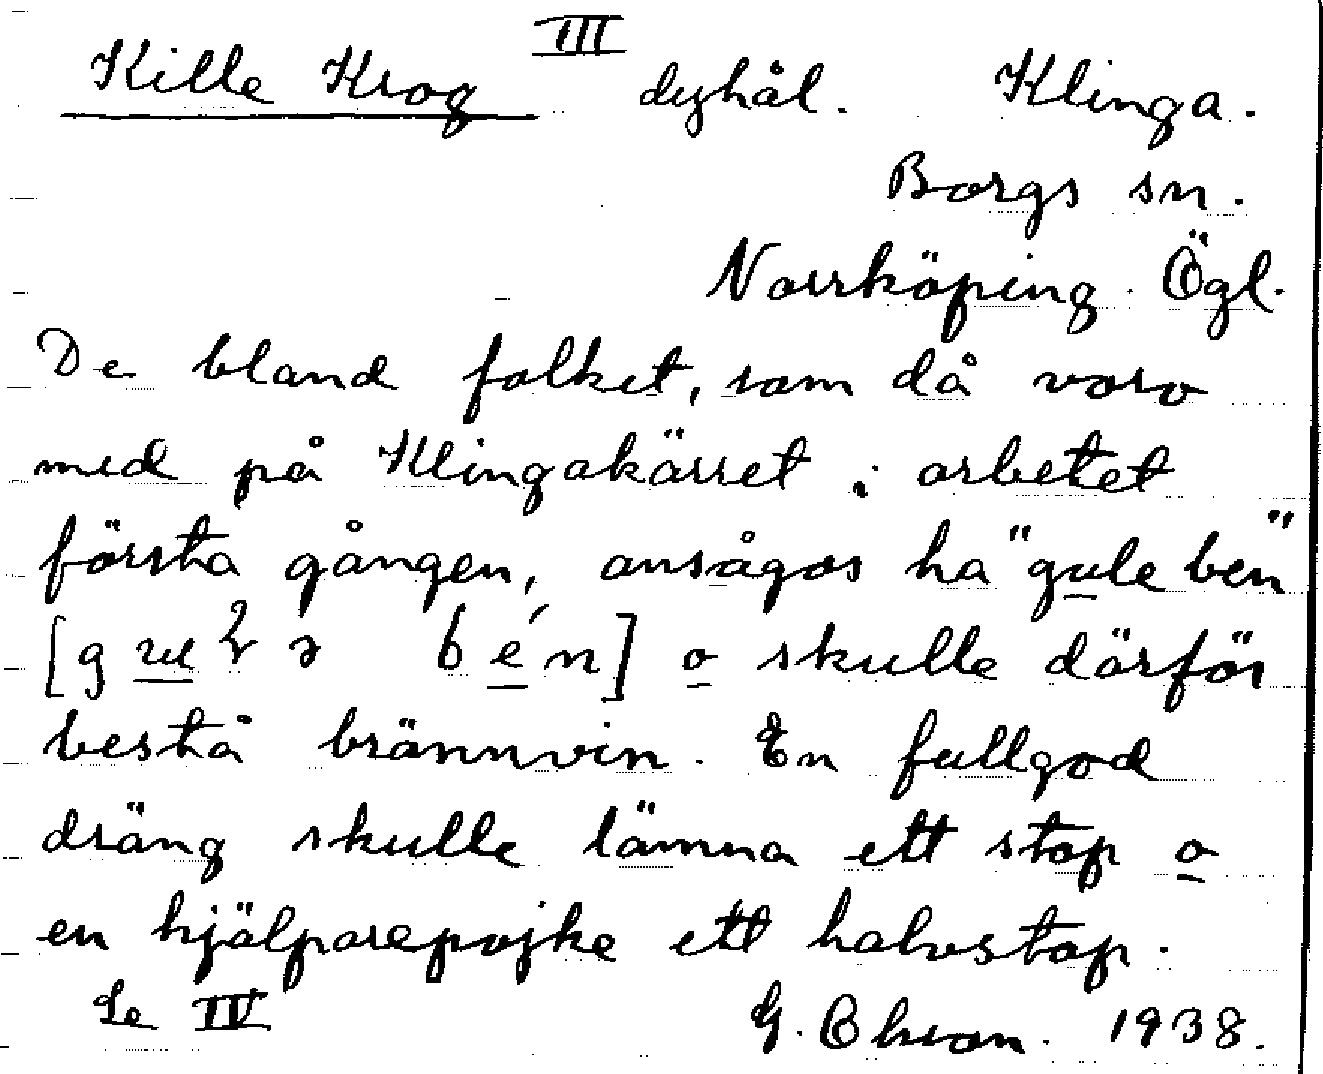 III
Kille Krog dyhål. Klinga.
Borgs sn.
Norrköping. Ögl.
De bland folket, som då voro
med på Klingakärret i arbetet
första gången, ansågos ha "gule ben"
[g ben] o skulle därför
bestå brännvin. En fullgod
dräng skulle lämna ett stop o
en hjälparepojke ett halvstop.
Se IV G. 1938.